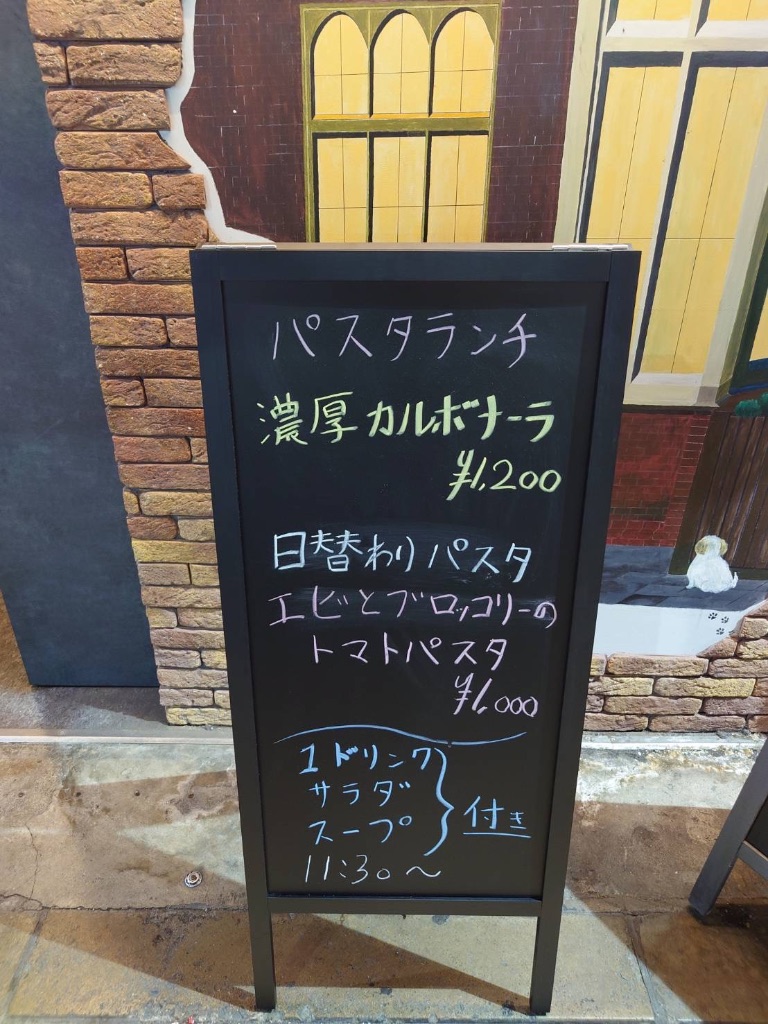 パスタランチ
濃厚カルボナーラ
¥1,200
日替わりパスタ
エビとブロッコリーの
トマトパスタ
¥1,000
1ドリンク
サラダ
スープ
付き
11:30〜